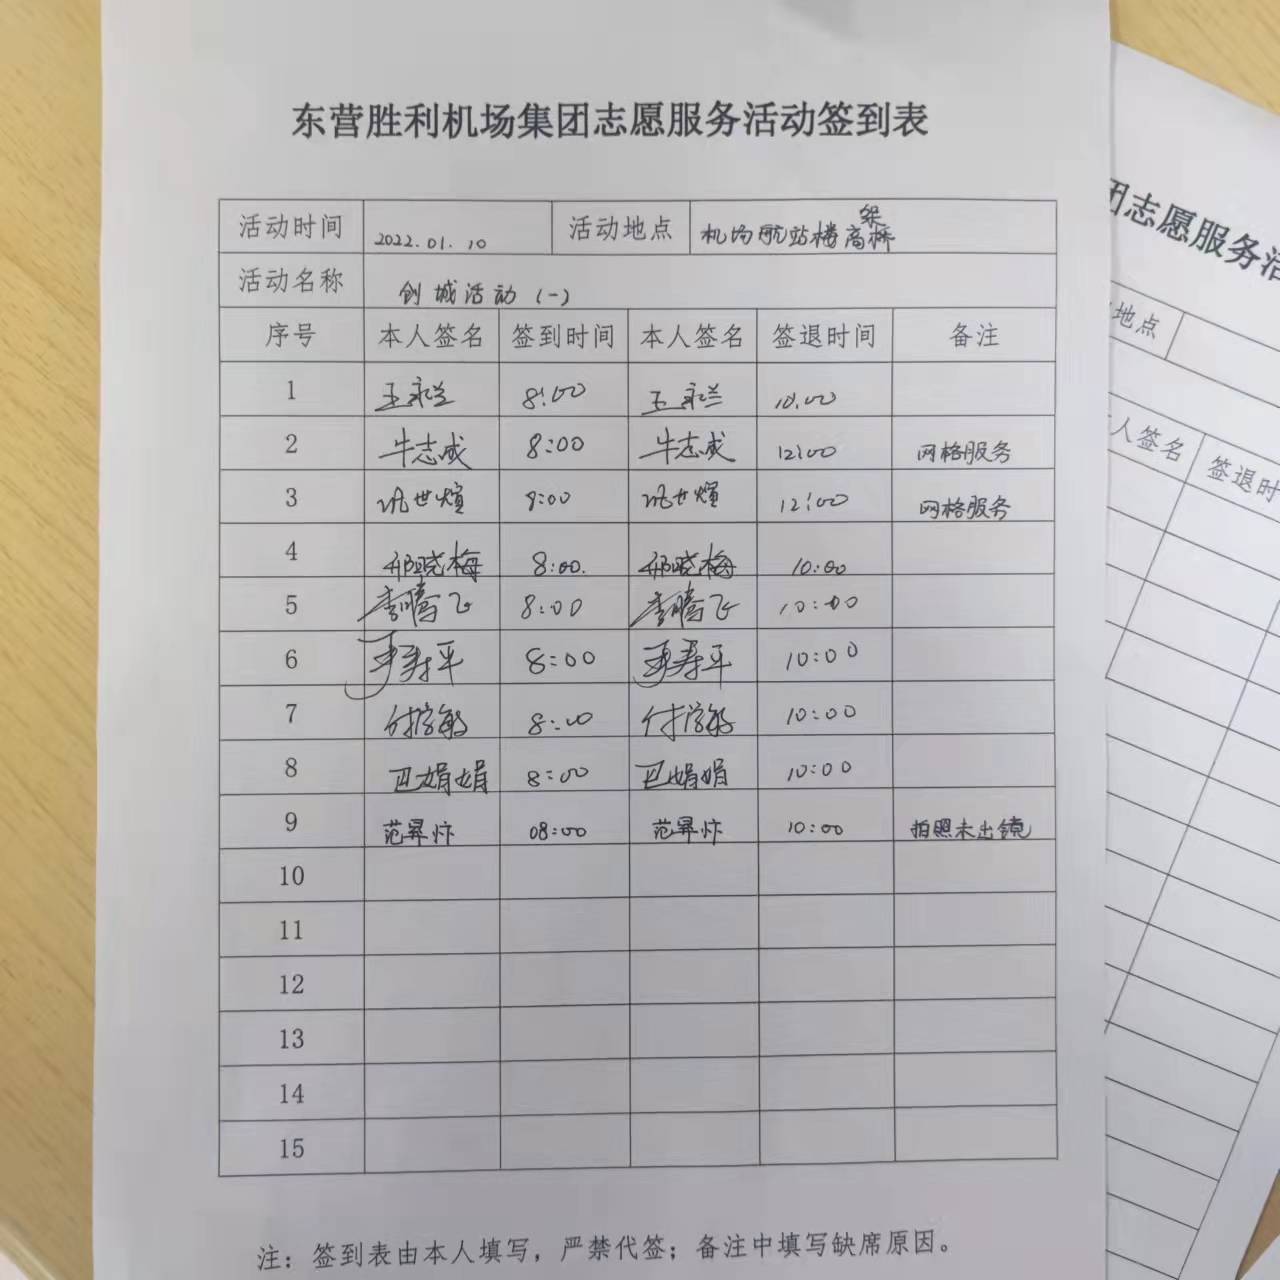 东营胜利机场集团志愿服务活动签到表
活动时间 2022.01.10 活动地点 机场航站楼高架桥
活动名称 创城活动(一)
序号 本人签名 签到时间 本人签名 签退时间 备注
1 王永兰 8:00 王永兰 10:00
2 牛志威 8:00 牛志威 12:00 网格服务
3 世煊 8:00 世煊 12:00 网格服务
4 邢晓梅 8:00. 邢晓梅 10:00
5 李腾飞 8:00 李腾飞 10:00
6 寿平 8:00 寿平 10:00
7 付学敏 8:00 付学敏 10:00
8 巴娟娟 8:00 巴娟娟 10:00
9 范昇忭 08:00 范昇忭 10:00 拍照未出镜
10
11
12
13
14
15
注：签到表由本人填写，严禁代签；备注中填写缺席原因。
团志愿服务活
地点
人签名 签退时